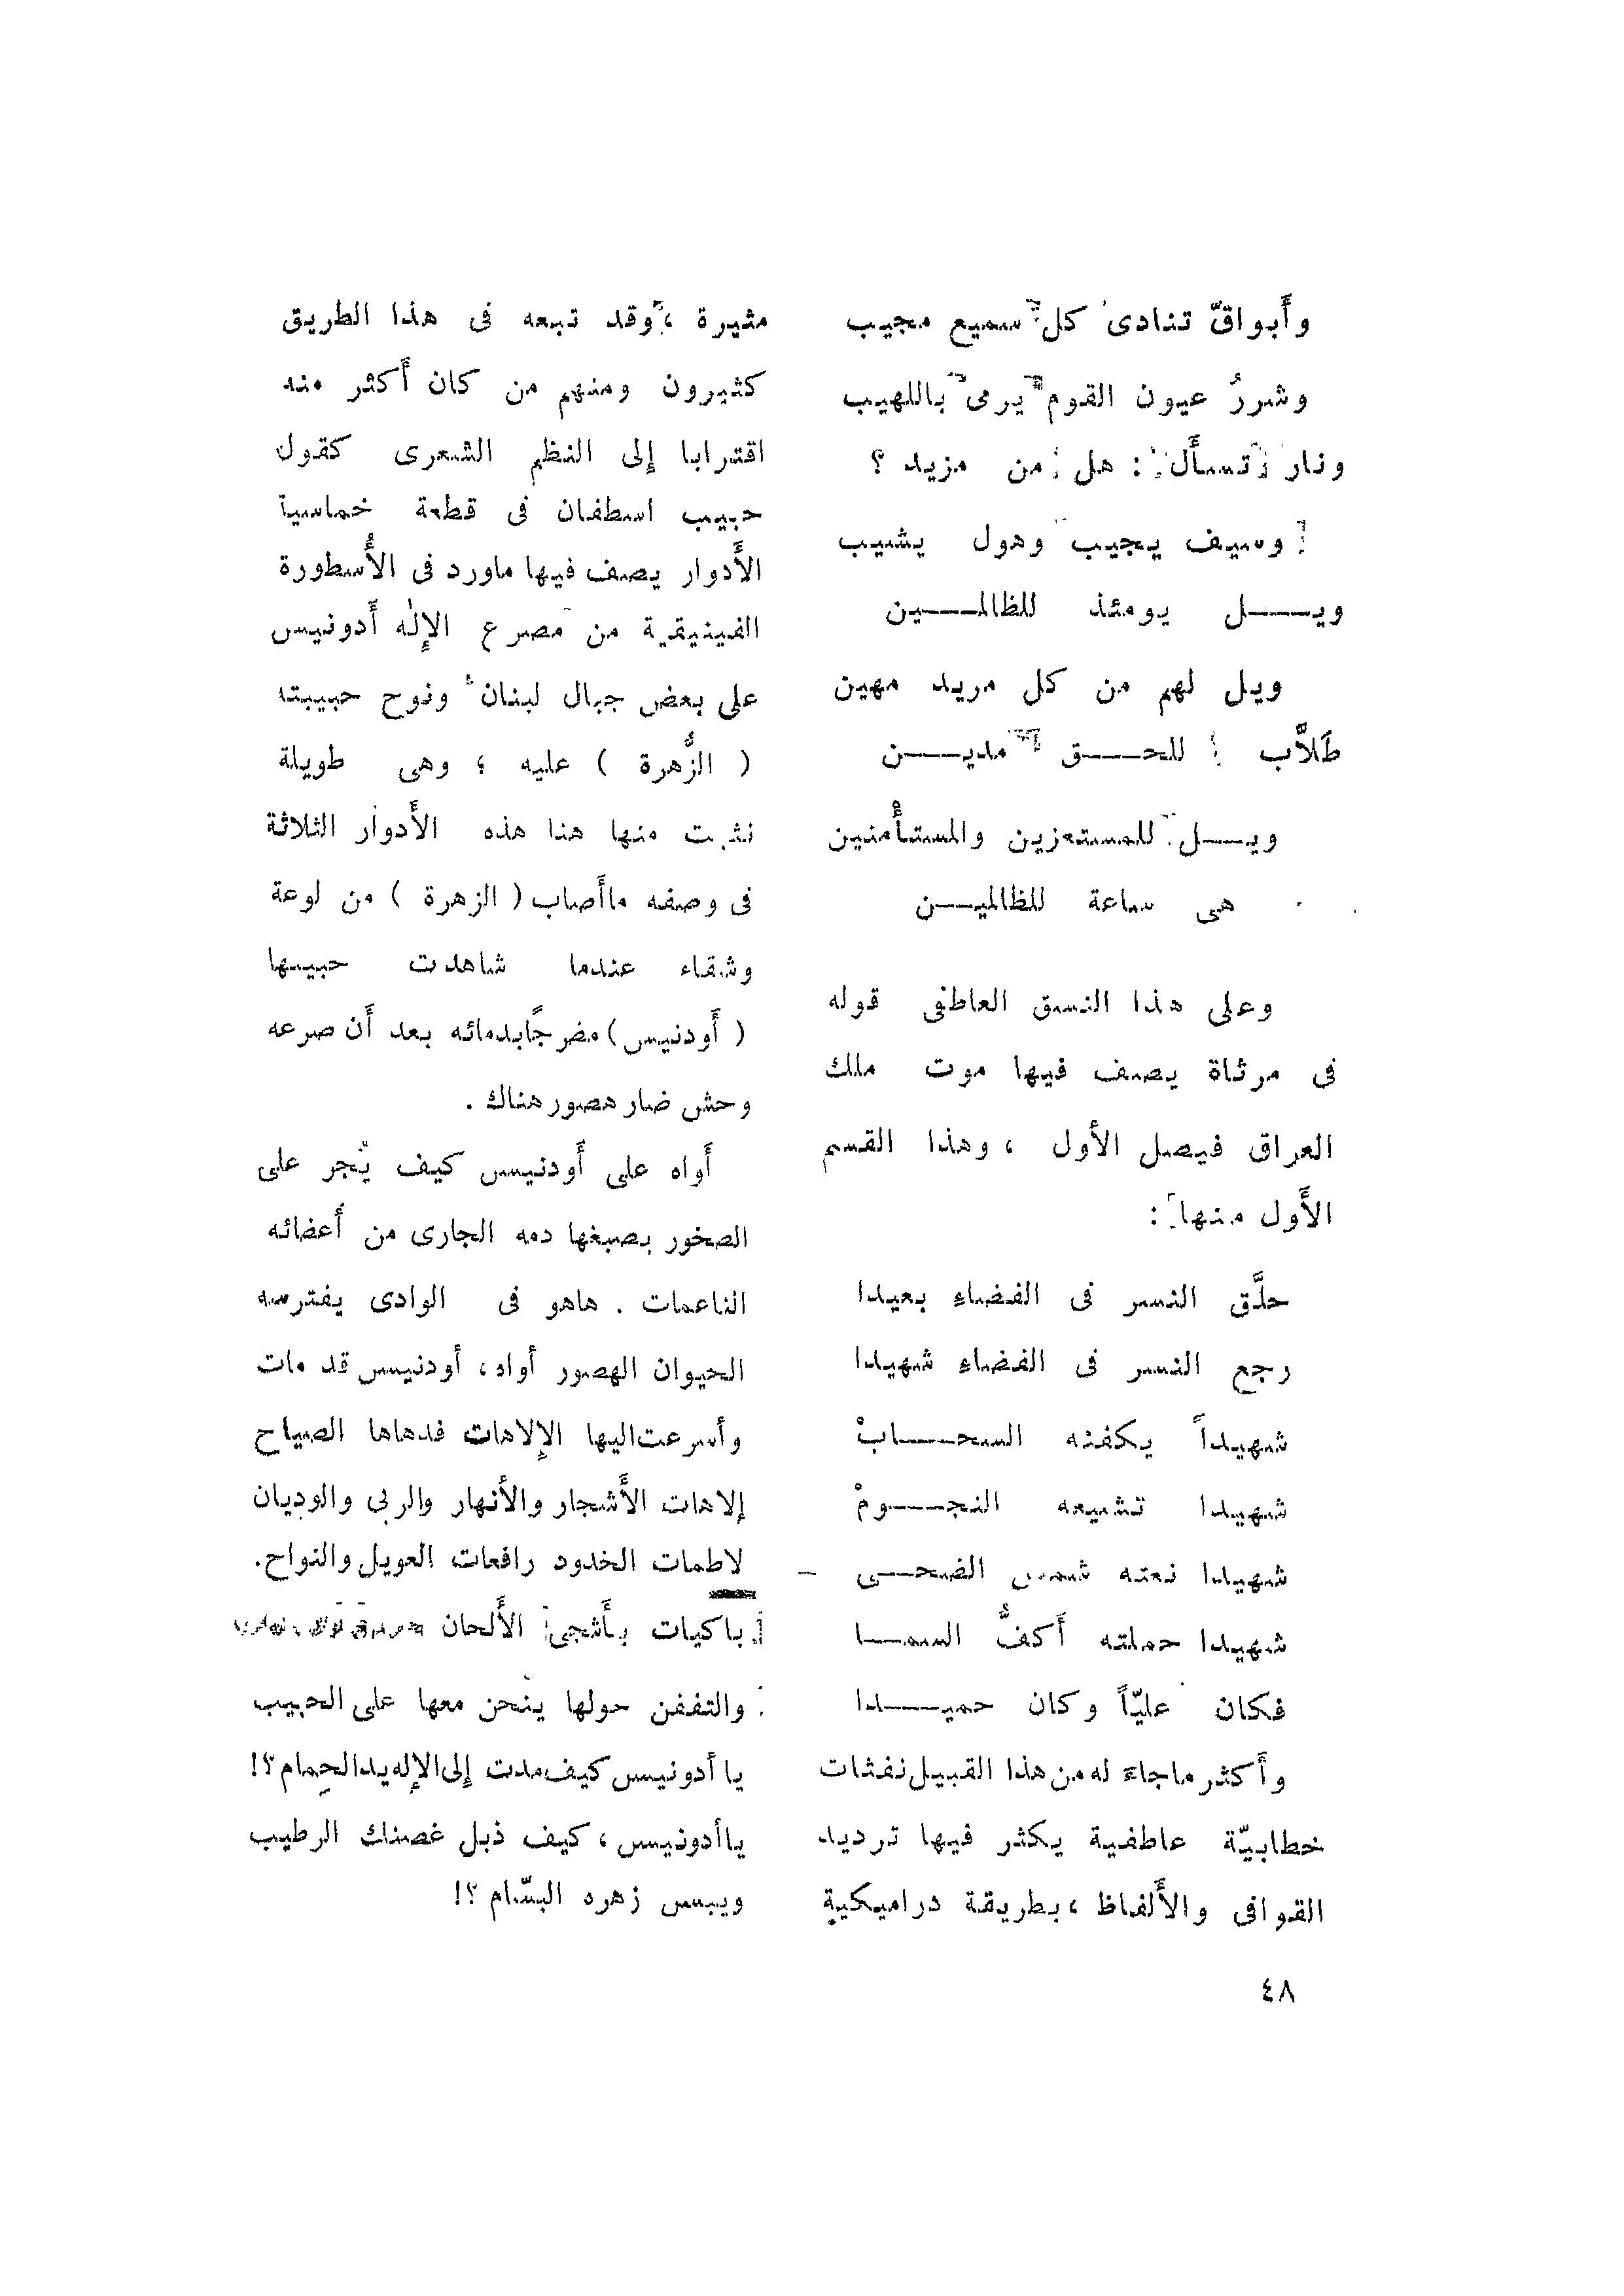 وأَبواقٌ تنادى كل سميع مجيب
وشررُ عيون القوم يرمى باللهيب
ونار تسأَل : هل من مزيد ؟
وسيف يجيب وهول يشيب
ويـــل يومئذ للظالمـــين
ويل لهم من كل مريد مهين
طَلاَّب للحـــق مديـــن
ويـــل للمستعزين والمستأْمنين
هى ساعة للظالميـــن
وعلى هذا النسق العاطفى قوله
فى مرثاة يصف فيها موت ملك
العراق فيصل الأول ، وهذا القسم
الأَول منها :
حلَّق النسر فى الفضاءِ بعيدا
رجع النسر فى الفضاءِ شهيدا
شهيداً يكفنه السحـــابْ
شهيدا تشيعه النجـــومْ
شهيدا نعته شمس الضحـــى
شهيدا حملته أَكفُّ السمـــا
فكان عليّاً وكان حميـــدا
وأَكثر ماجاءَ له من هذا القبيل نفثات
خطابيّة عاطفية يكثر فيها ترديد
القوافى والأَلفاظ ، بطريقة دراميكية
مثيرة ، وقد تبعه فى هذا الطريق
كثيرون ومنهم من كان أَكثر منه
اقترابا إلى النظم الشعرى كقول
حبيب اسطفان فى قطعة خماسية
الأَدوار يصف فيها ماورد فى الأُسطورة
الفينيقية من مصرع الإِلٰه أَدونيس
على بعض جبال لبنان ونوح حبيبته
( الزُّهرة ) عليه ؛ وهى طويلة
نثبت منها هنا هذه الأَدوار الثلاثة
فى وصفه ماأَصاب ( الزهرة ) من لوعة
وشقاء عندما شاهدت حبيبها
( أَودنيس ) مضرجًا بدمائه بعد أَن صرعه
وحش ضار هصور هناك .
أَواه على أَودنيس كيف يُجر على
الصخور بصبغها دمه الجارى من أَعضائه
الناعمات . هاهو فى الوادى يفترسه
الحيوان الهصور أواه ، أودنيس قد مات
وأسرعت اليها الإِلاهات فدهاها الصياح
إلاهات الأَشجار والأَنهار والربى والوديان
لاطمات الخدود رافعات العويل والنواح .
باكيات بأَشجى الأَلحان
والتففن حولها ينحن معها على الحبيب
يا أدونيس كيف مدت إلى الإِله يد الحِمام ؟!
يا أدونيس ، كيف ذبل غصنك الرطيب
ويبس زهره البسَّام ؟!
٤٨